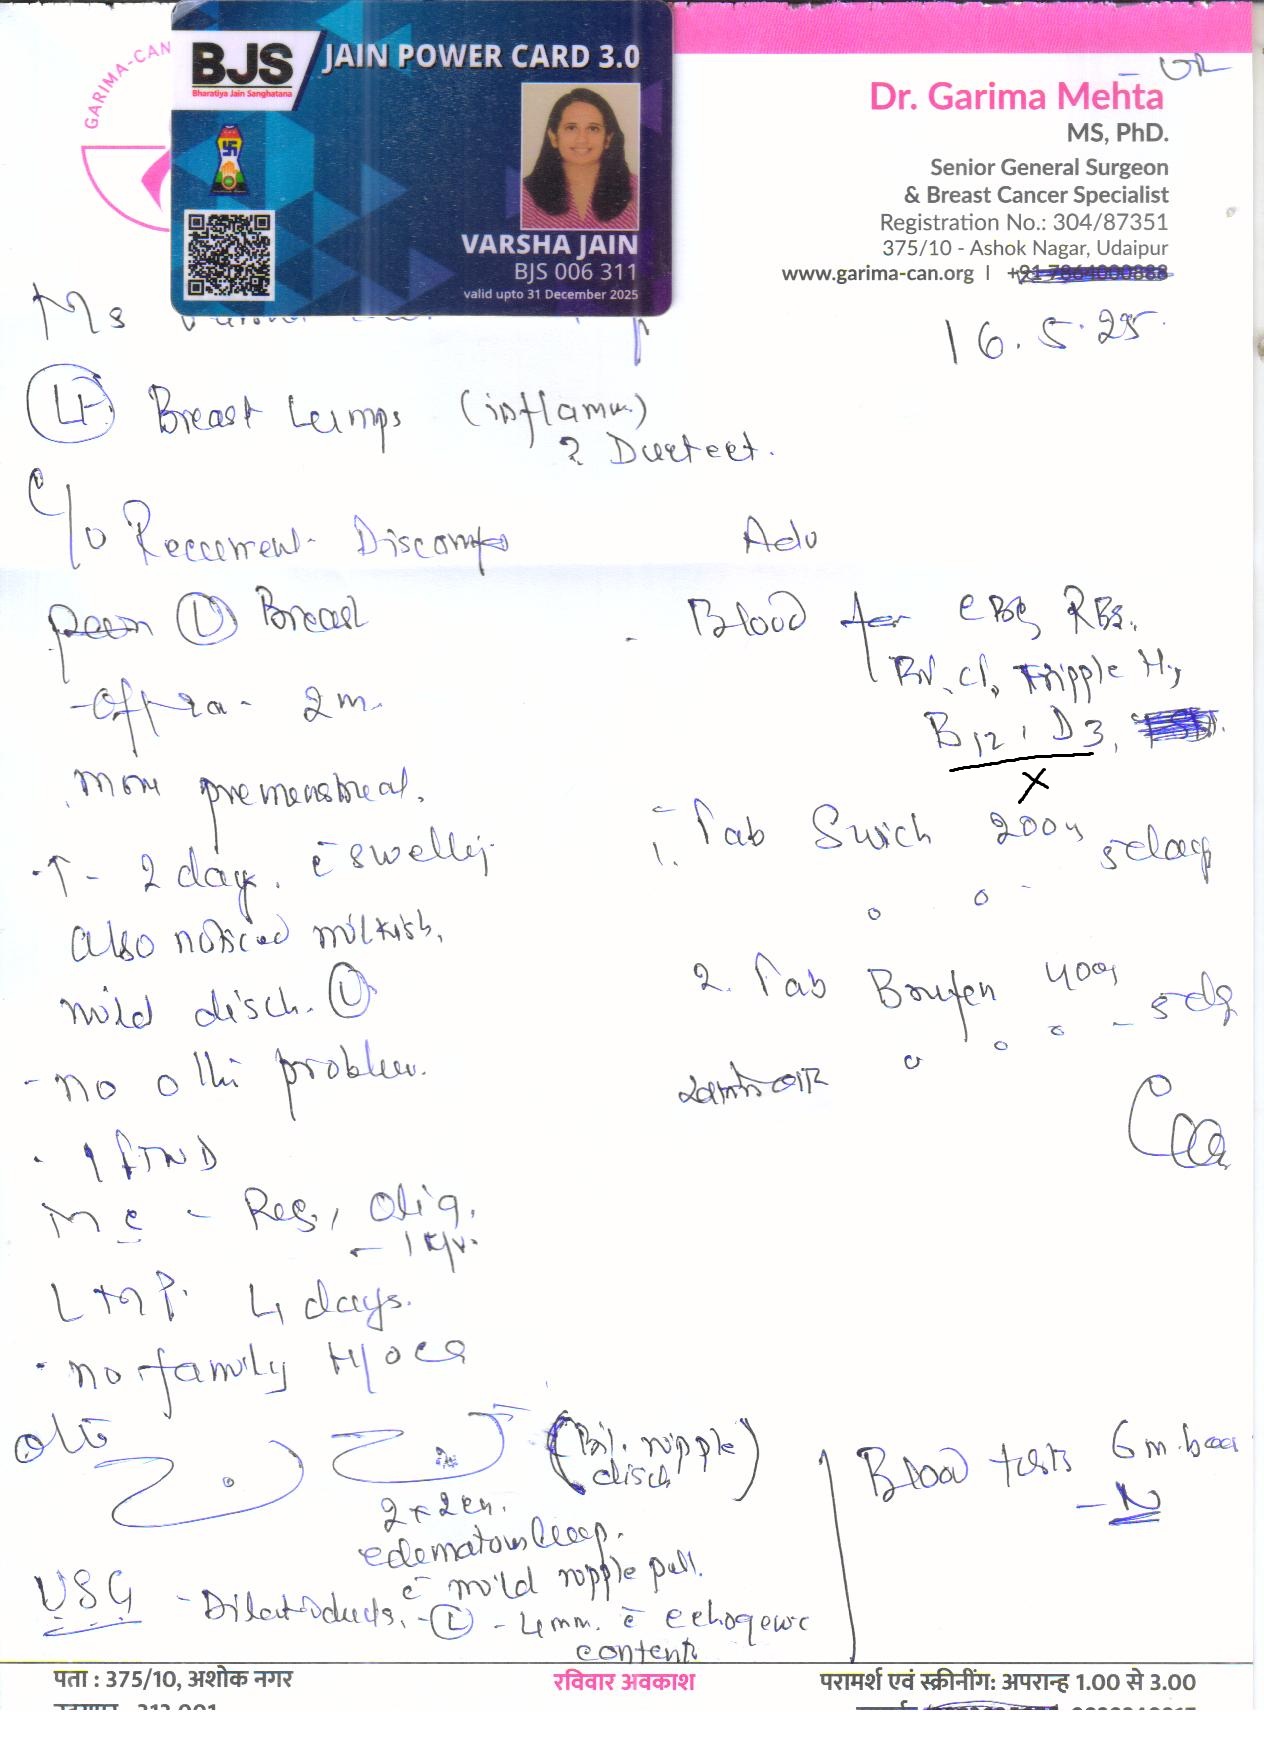 GARIMA-CAN
BJS
Bharatiya Jain Sanghatana
JAIN POWER CARD 3.0
VARSHA JAIN
BJS 006 311
valid upto 31 December 2025
Dr. Garima Mehta
MS, PhD.
Senior General Surgeon
& Breast Cancer Specialist
Registration No.: 304/87351
375/10 - Ashok Nagar, Udaipur
www.garima-can.org | +91 7864000888
Ms
16.5.25
Breast Lumps (inflamm.)
?
C/o Reccurrent Discomf
pain (L) Breast
- off & on - 2m.
more premenstrual.
↑ - 2 days. c̄ swelling
also noticed milkish,
mild disch. (L)
- no othr problem.
. 1 FTND
MC - Reg, Olig.
LMP. 4 days.
. no family H/o Ca
O/E
(Bil. nipple
disch)
2 x 2 cm.
edematous lump.
c̄ mild nipple pull.
USG - Dilated ducts, - (L) - 4mm. c̄ echogenic
content
Adv
- Blood for CBC, RBS.
Tripple H,
B12, D3,
X
1. Tab Swich 200mg 5 days
2. Tab Brufen 400mg 5 dy
Blood tests 6m. back
- N
पता : 375/10, अशोक नगर
रविवार अवकाश
परामर्श एवं स्क्रीनींग: अपरान्ह 1.00 से 3.00